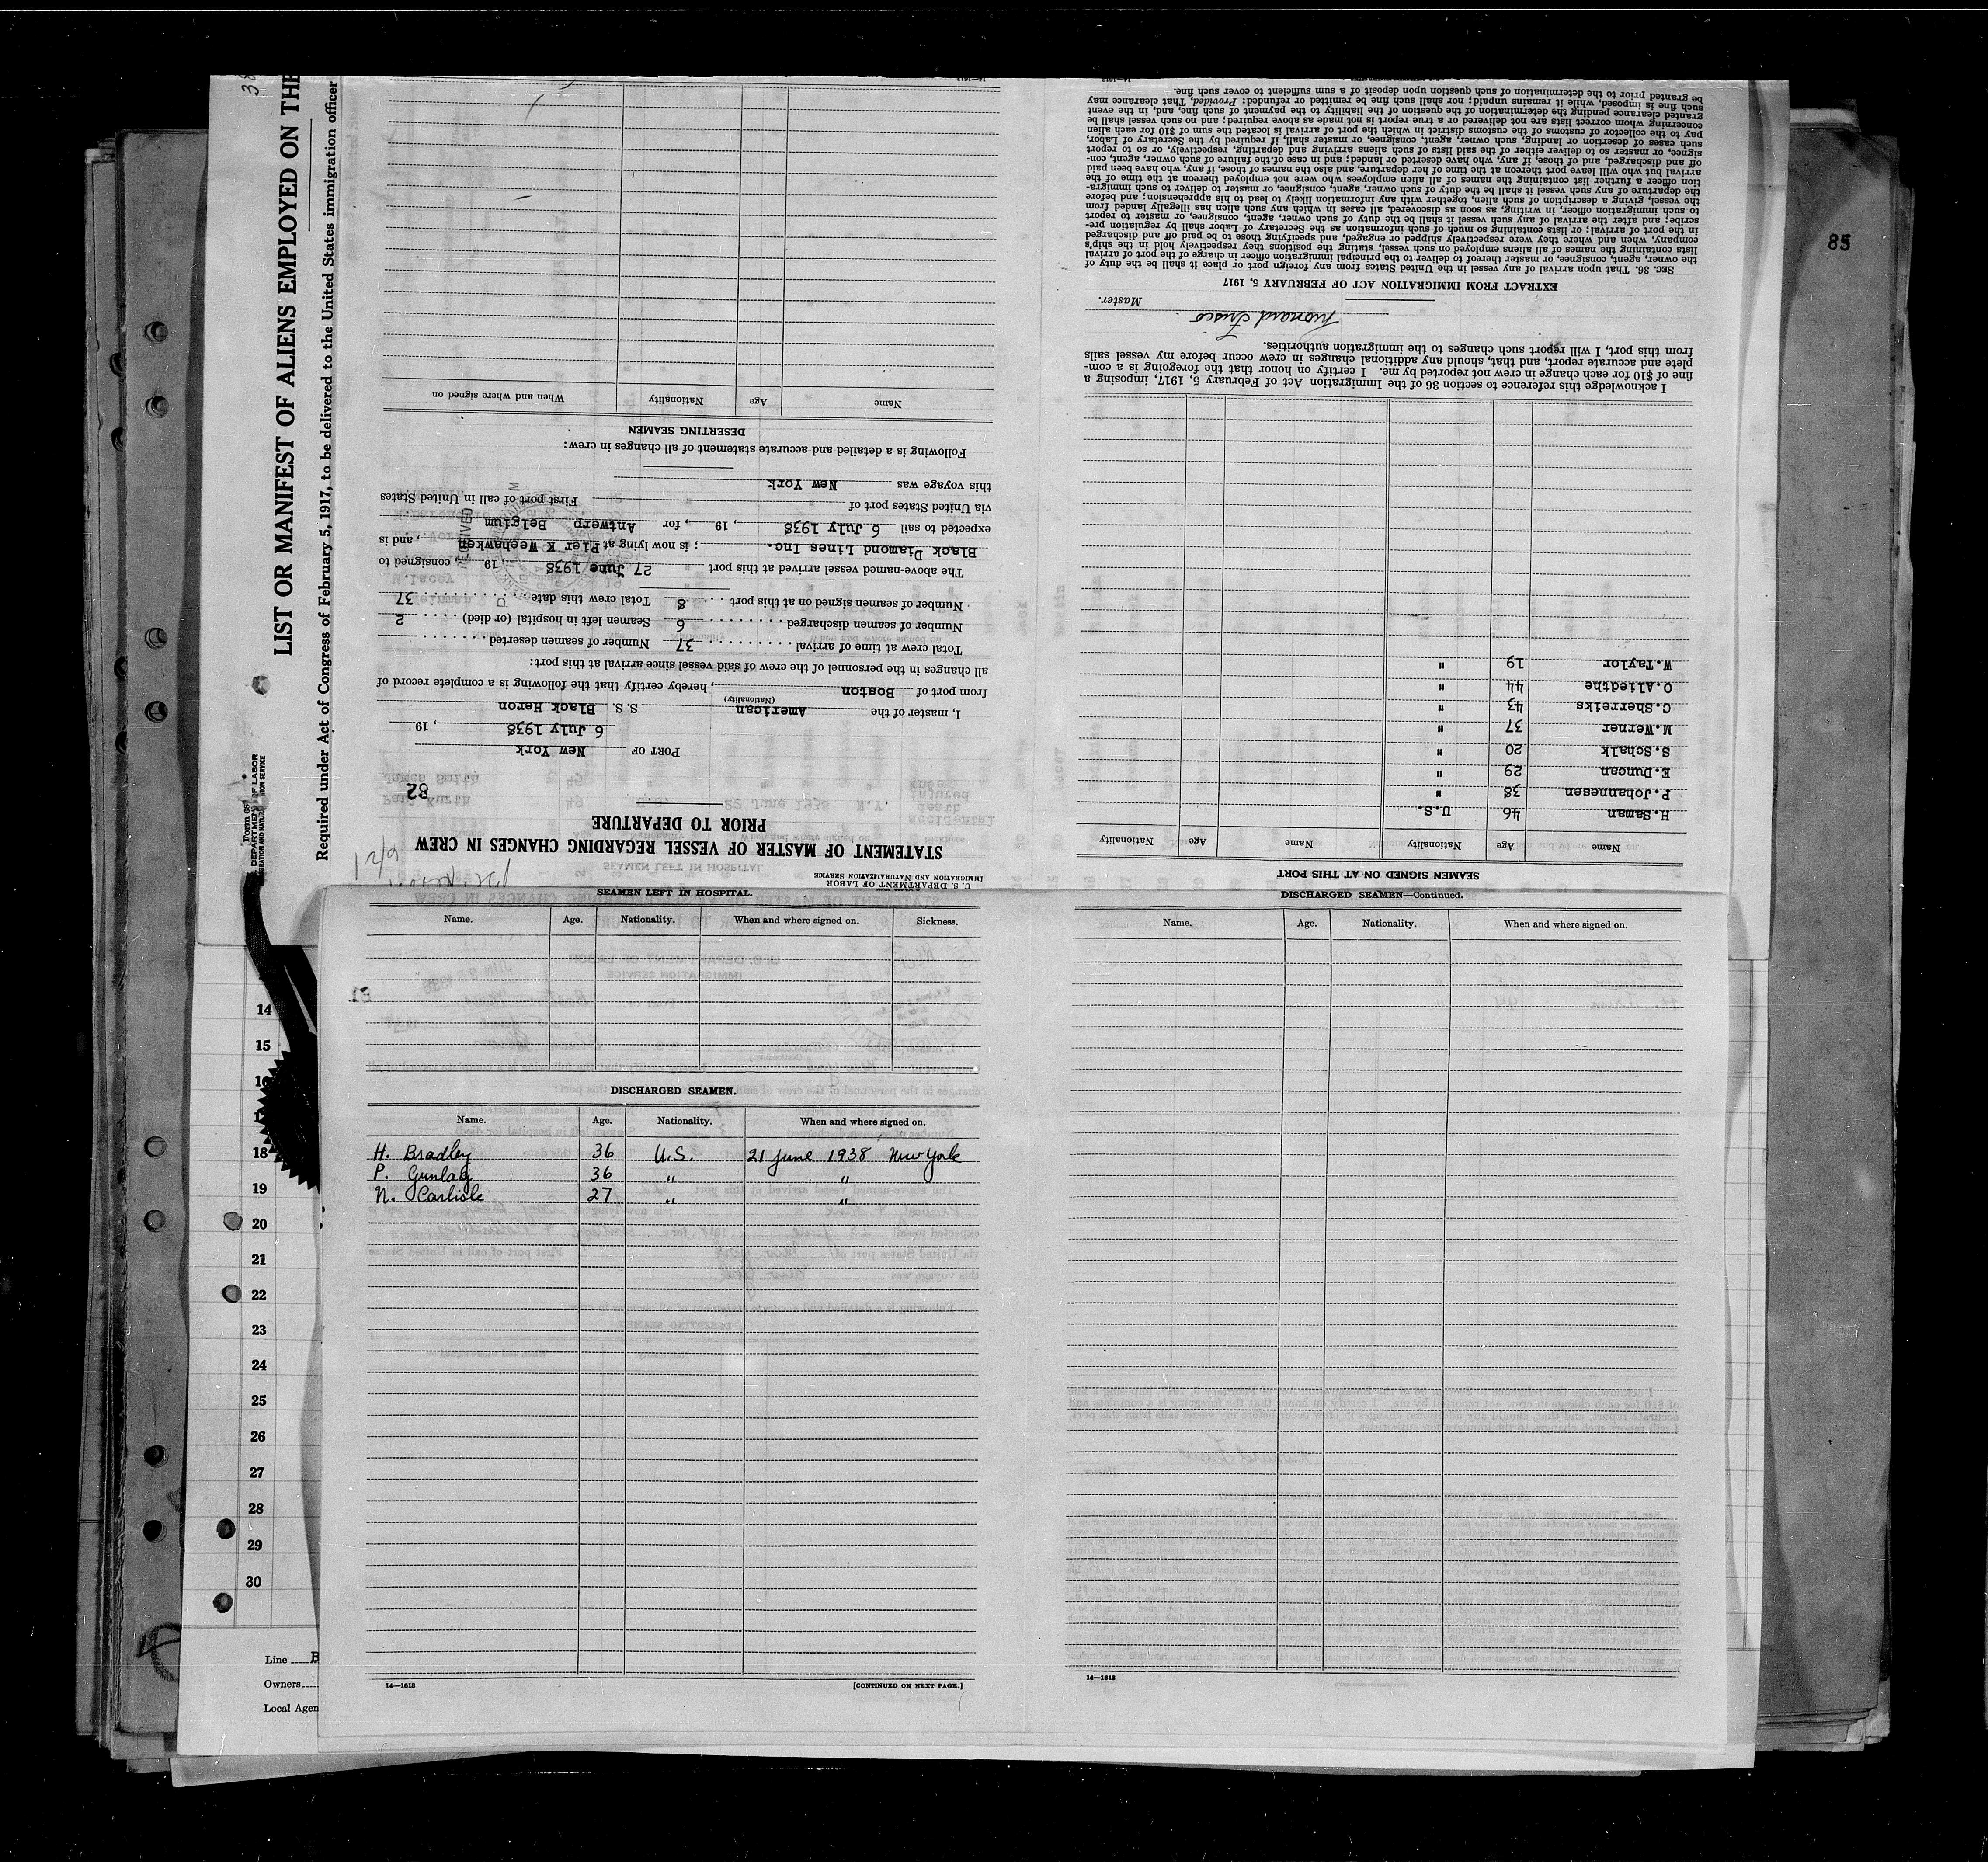 LIST OR MANIFEST OF ALIENS EMPLOYED ON THE
Required under Act of Congress of February 5, 1917, to be delivered to the United States immigration officer
85
U. S. DEPARTMENT OF LABOR
IMMIGRATION AND NATURALIZATION SERVICE
STATEMENT OF MASTER OF VESSEL REGARDING CHANGES IN CREW
PRIOR TO DEPARTURE
82
PORT OF New York
6 July 1938, 19
I, master of the American S. S. Black Heron
(Nationality)
from port of Boston, hereby certify that the following is a complete record of
all changes in the personnel of the crew of said vessel since arrival at this port:
Total crew at time of arrival 37 Number of seamen deserted
Number of seamen discharged 6 Seamen left in hospital (or died) 2
Number of seamen signed on at this port 8 Total crew this date 37
The above-named vessel arrived at this port 27 June 1938, 19, consigned to
Black Diamond Lines Inc.; is now lying at Pier K Weehawken, and is
expected to sail 6 July 1938, 19, for Antwerp Belgium
via United States port of First port of call in United States
this voyage was New York
Following is a detailed and accurate statement of all changes in crew:
DESERTING SEAMEN
Name Age Nationality When and where signed on
SEAMEN SIGNED ON AT THIS PORT
Name Age Nationality Name Age Nationality
H.Saman 46 U.S.
P.Johannesen 38 "
E.Duncan 29 "
S.Schalk 20 "
M.Werner 37 "
C.Sherreiks 43 "
O.Aliedthe 44 "
W.Taylor 19 "
I acknowledge this reference to section 36 of the Immigration Act of February 5, 1917, imposing a
fine of $10 for each change in crew not reported by me. I certify on honor that the foregoing is a com-
plete and accurate report, and that, should any additional changes in crew occur before my vessel sails
from this port, I will report such changes to the immigration authorities.
Frisco
Master.
EXTRACT FROM IMMIGRATION ACT OF FEBRUARY 5, 1917
SEC. 36. That upon arrival of any vessel in the United States from any foreign port or place it shall be the duty of
the owner, agent, consignee, or master thereof to deliver to the principal immigration officer in charge of the port of arrival
lists containing the names of all aliens employed on such vessel, stating the positions they respectively hold in the ship's
company, when and where they were respectively shipped or engaged, and specifying those to be paid off and discharged
in the port of arrival; or lists containing so much of such information as the Secretary of Labor shall by regulation pre-
scribe; and after the arrival of any such vessel it shall be the duty of such owner, agent, consignee, or master to report
to such immigration officer, in writing, as soon as discovered, all cases in which any such alien has illegally landed from
the vessel, giving a description of such alien, together with any information likely to lead to his apprehension; and before
the departure of any such vessel it shall be the duty of such owner, agent, consignee, or master to deliver to such immigra-
tion officer a further list containing the names of all alien employees who were not employed thereon at the time of the
arrival but who will leave port thereon at the time of her departure, and also the names of those, if any, who have been paid
off and discharged, and of those, if any, who have deserted or landed; and in case of the failure of such owner, agent, con-
signee, or master so to deliver either of the said lists of such aliens arriving and departing, respectively, or so to report
such cases of desertion or landing, such owner, agent, consignee, or master shall, if required by the Secretary of Labor,
pay to the collector of customs of the customs district in which the port of arrival is located the sum of $10 for each alien
concerning whom correct lists are not delivered or a true report is not made as above required; and no such vessel shall be
granted clearance pending the determination of the question of the liability to the payment of such fine, and, in the event
such fine is imposed, while it remains unpaid; nor shall such fine be remitted or refunded: Provided, That clearance may
be granted prior to the determination of such question upon deposit of a sum sufficient to cover such fine.
SEAMEN LEFT IN HOSPITAL.
Name. Age. Nationality. When and where signed on. Sickness.
DISCHARGED SEAMEN.
Name. Age. Nationality. When and where signed on.
H. Bradley 36 U.S. 21 June 1938 New York
P. Gunlag 36 " "
N. Carlisle 27 " "
14—1613 [CONTINUED ON NEXT PAGE.]
DISCHARGED SEAMEN—Continued.
Name. Age. Nationality. When and where signed on.
14—1613
14
15
16
17
18
19
20
21
22
23
24
25
26
27
28
29
30
Line B
Owners
Local Agen